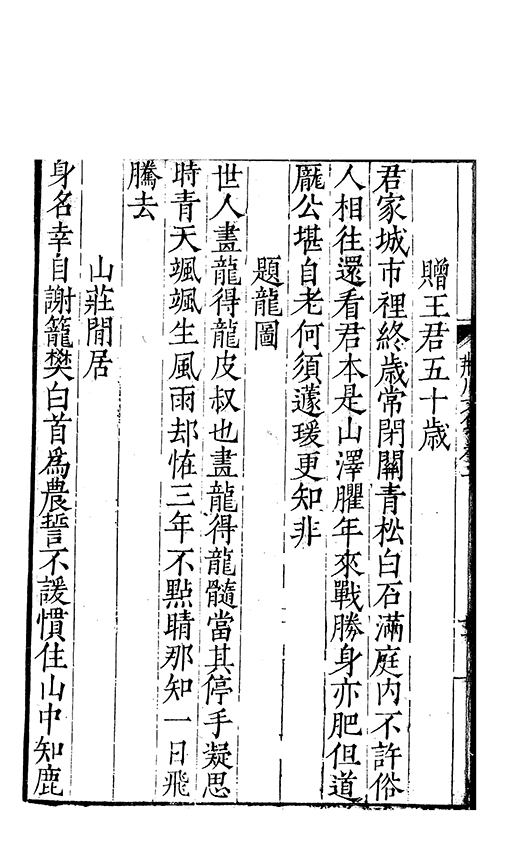 贈王君五十歲
君家城市裡終歲常閉關青松白石滿庭内不許俗
人相往還看君本是山澤臞年來戰勝身亦肥但道
龎公堪自老何須蘧瑗更知非
題龍圖
世人畫龍得龍皮叔也畫龍得龍髓當其停手凝思
時青天颯颯生風雨却恠三年不點睛那知一日飛
騰去
山莊閒居
身名幸自謝籠樊白首爲農誓不諼慣住山中知鹿